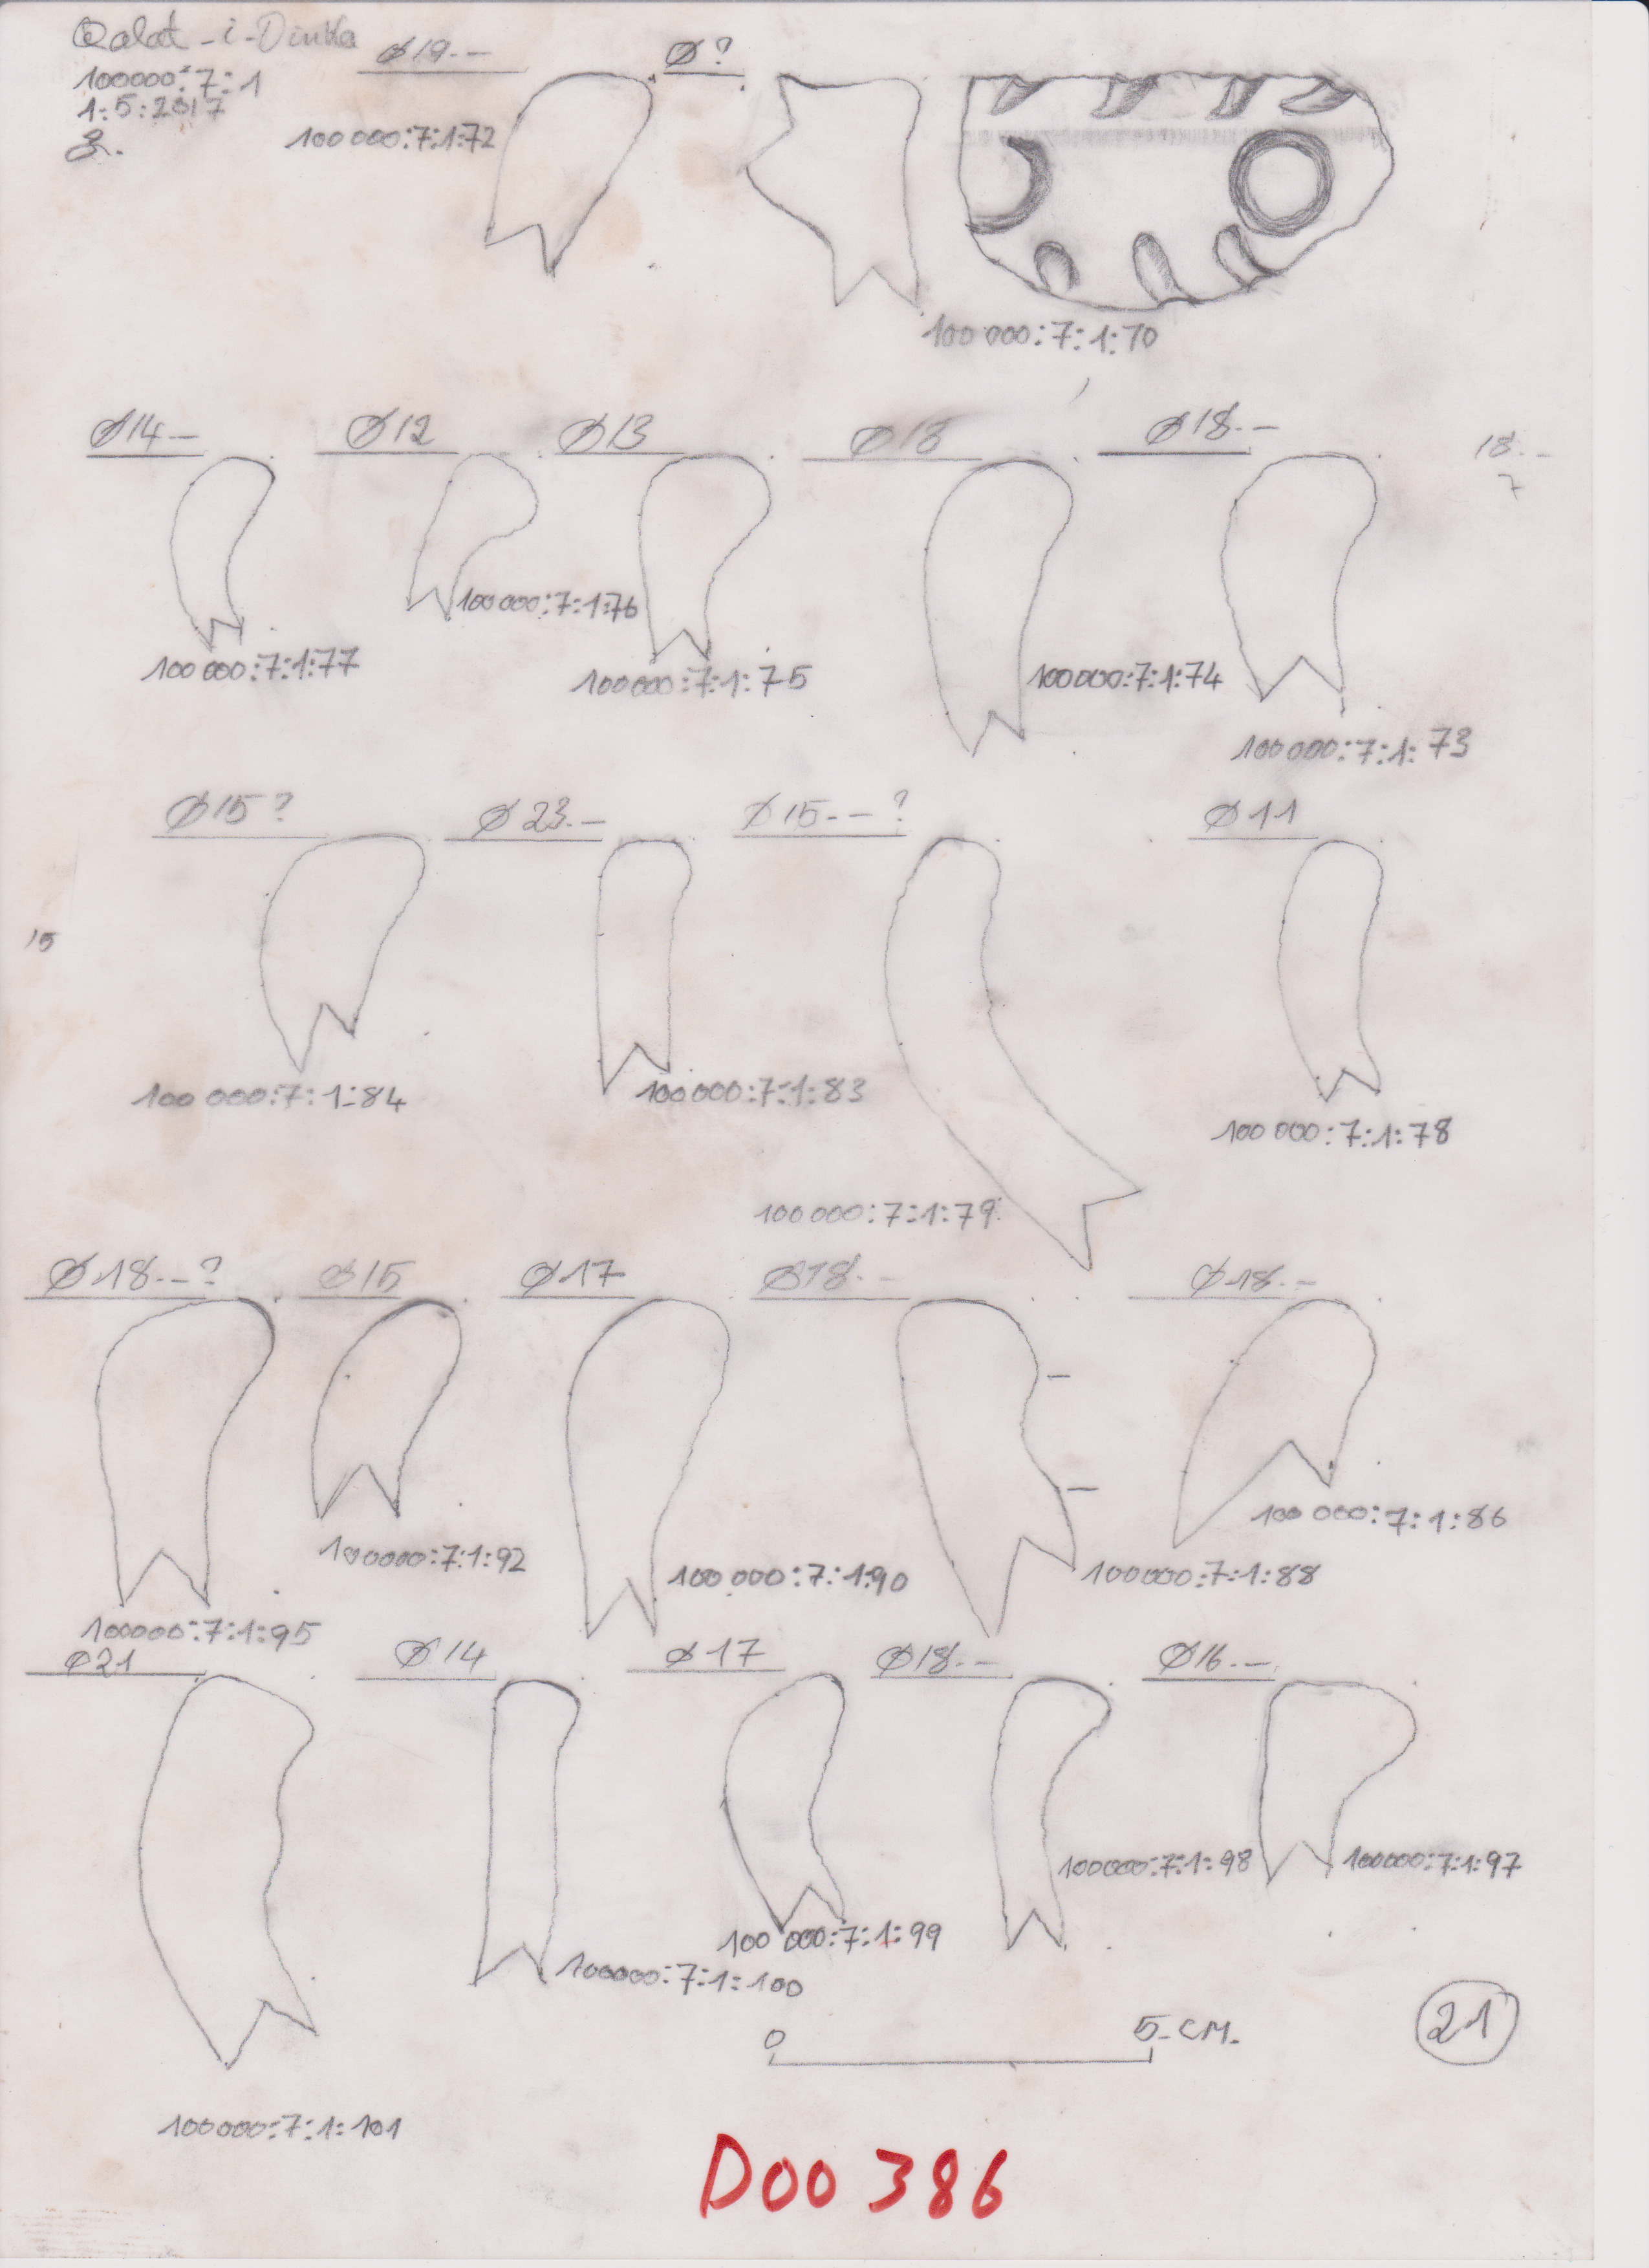 Qalat-i-Dinka
100000:7:1
1:5:2017
Ø19.-
Ø?
100 000:7:1:72
100 000:7:1:70
Ø14-
Ø12
Ø13
Ø18
Ø18.-
18.-
7
100 000:7:1:77
100 000:7:1:76
100000:7:1:75
100000:7:1:74
100 000:7:1:73
Ø15?
Ø23.-
Ø15.--?
Ø11
15
100 000:7:1:84
100000:7:1:83
100 000:7:1:79
100 000:7:1:78
Ø18.--?
Ø15
Ø17
Ø18.-
Ø18.-
100000:7:1:95
100000:7:1:92
100 000:7:1:90
100000:7:1:88
100 000:7:1:86
Ø21
Ø14
Ø17
Ø18.-
Ø16.-
100000:7:1:101
100000:7:1:100
100 000:7:1:99
100000:7:1:98
100000:7:1:97
0
5 CM.
21
D00386